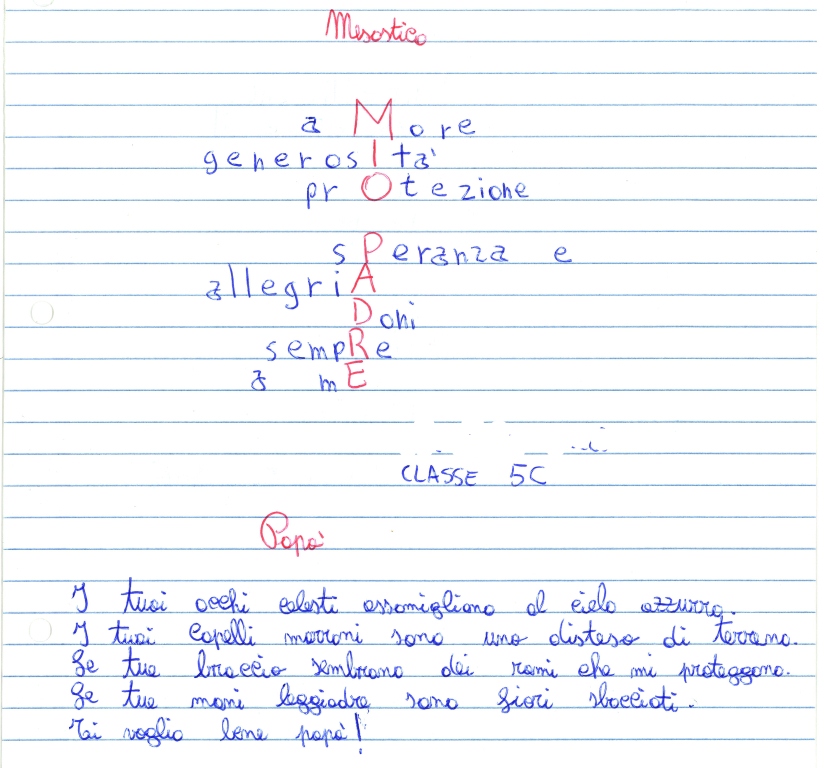 Mesostico
a More
generosItà
prOtezione
sPeranza e
allegriA
Doni
sempRe
a mE
CLASSE 5C
Papà
I tuoi occhi celesti assomigliano al cielo azzurro.
I tuoi capelli marroni sono una distesa di terreno.
Le tue braccia sembrano dei rami che mi proteggono.
Le tue mani leggiadre sono fiori sbocciati.
Ti voglio bene papà!